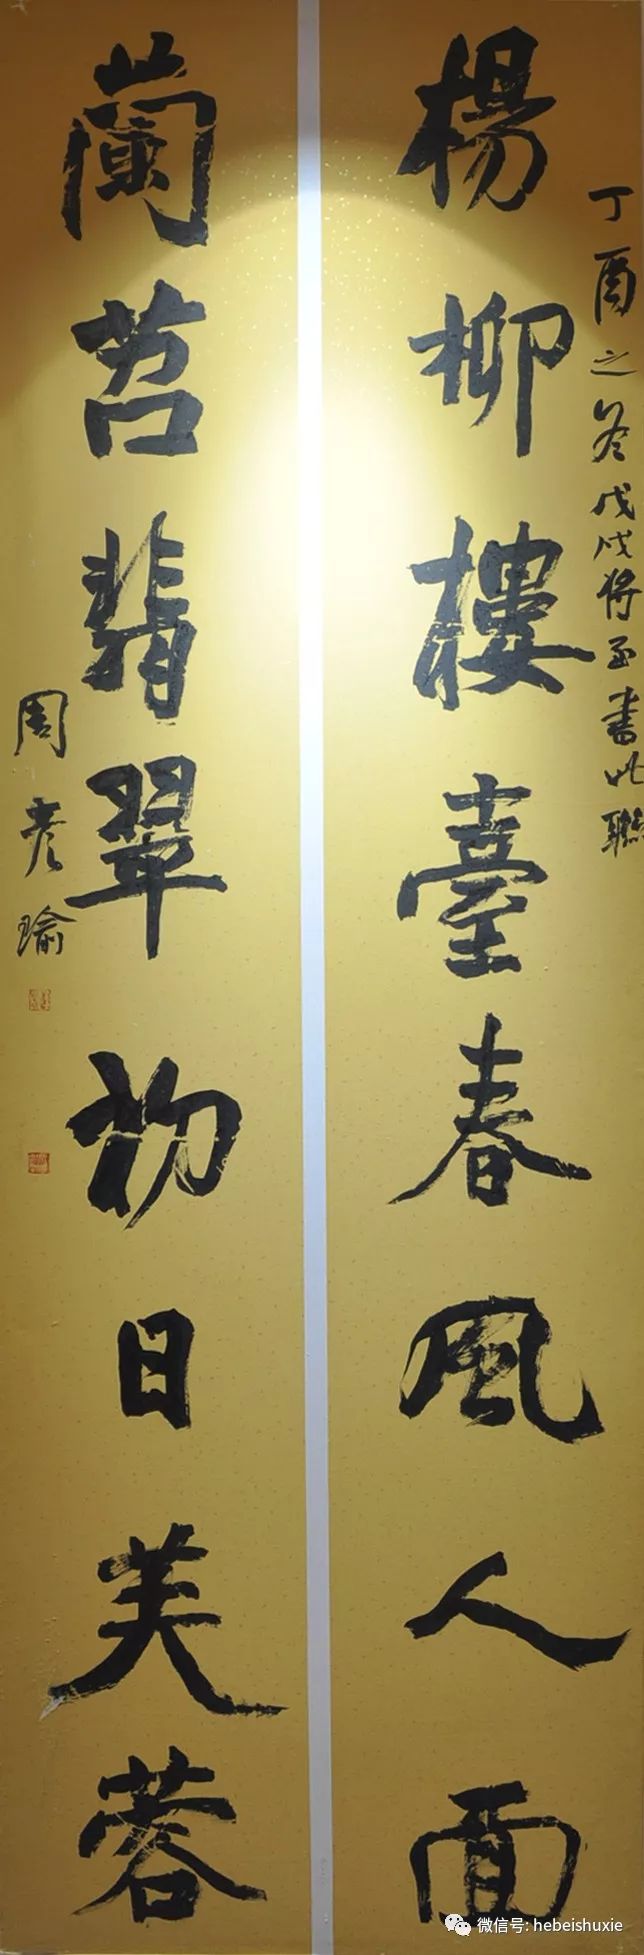 丁酉之冬戊戌将至书此聯
楊柳樓臺春風人面
蘭苕翡翠初日芙蓉
周彦瑜
微信号: hebeishuxie